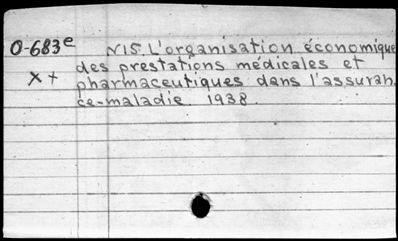 O-683e N15. L'organisation économique
xx des prestations médicales et
pharmaceutiques dans l'assuran
ce-maladie. 1938.